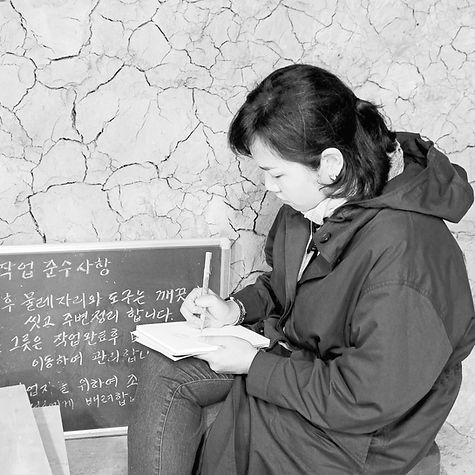 작업 준수사항
후 물레자리와 도구는 깨끗
씻고 주변정리 합니다.
그릇은 작업완료후
이동하여 관리합니다
업자를 위하여 조
에게 배려합